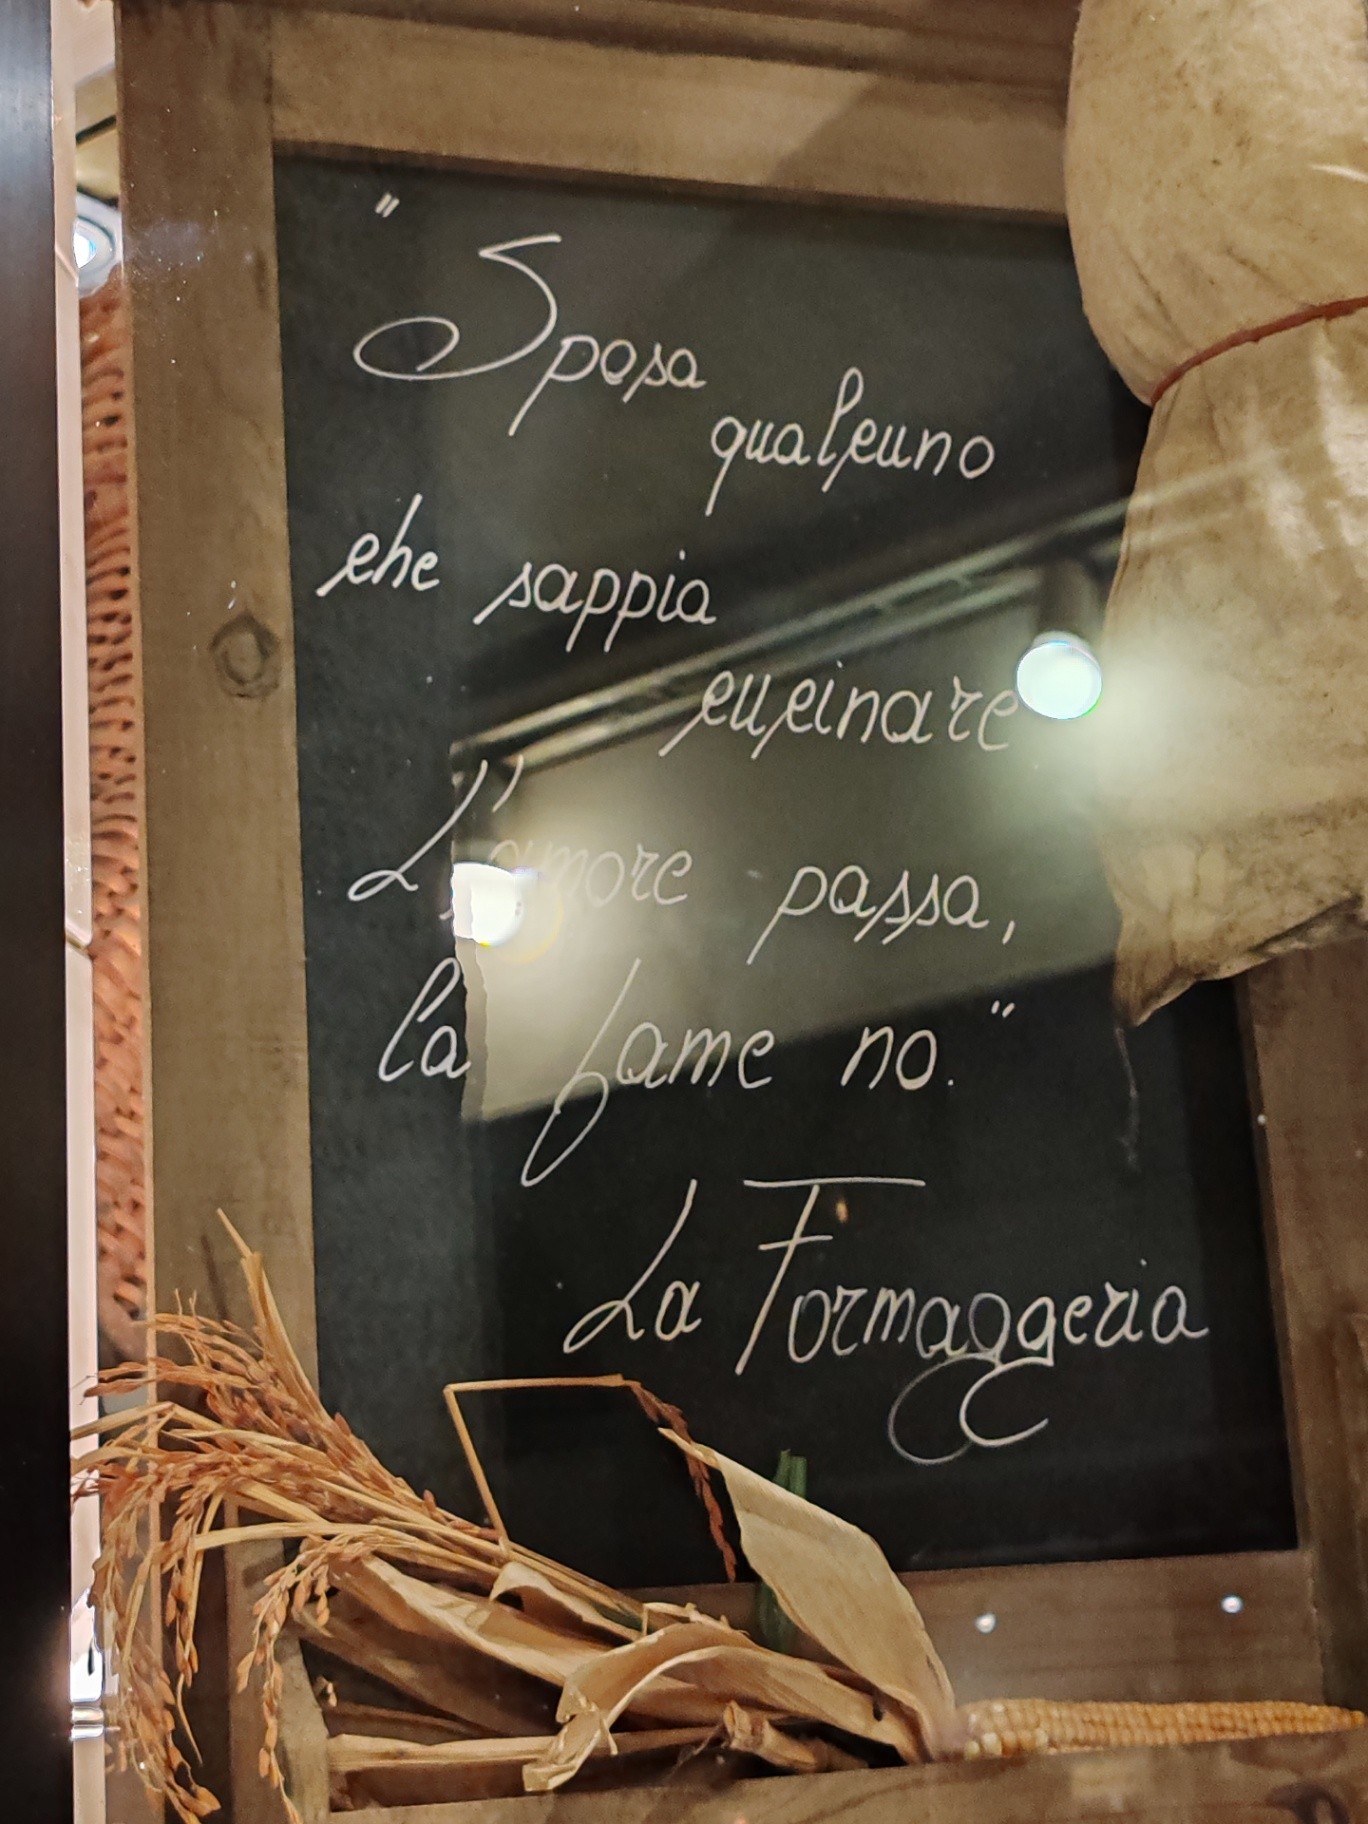 "Sposa
qualcuno
che sappia
cucinare
L'amore passa,
la fame no."
La Formaggeria